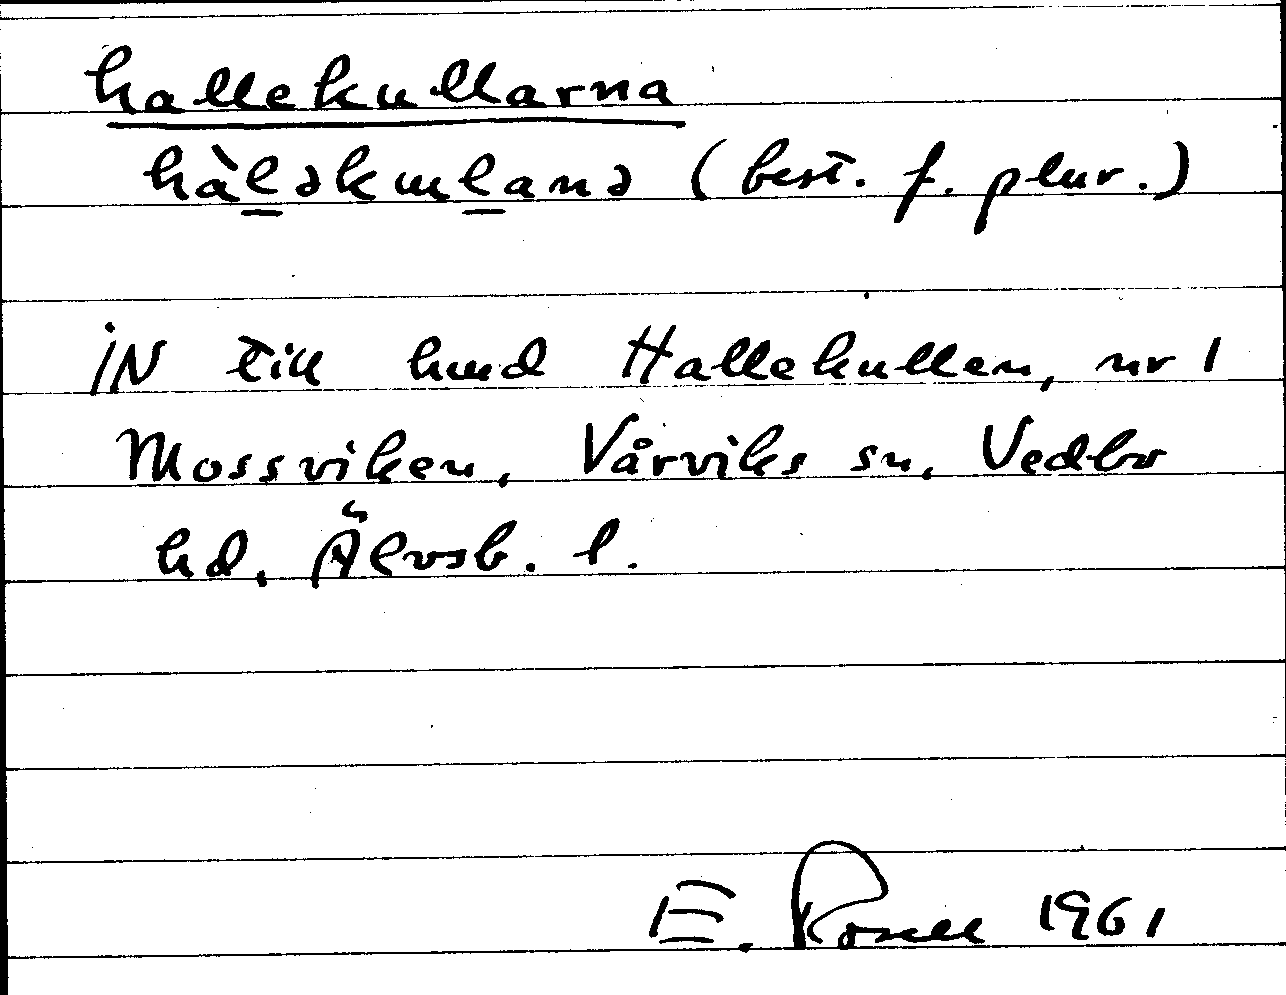 hallekullarna
hàləkɯlanə (best. f. plur.)
iN till hmd Hallekullen, nr 1
Mossviken, Vårviks sn, Vedbo
hd. Älvsb. l.
E. Rosell 1961